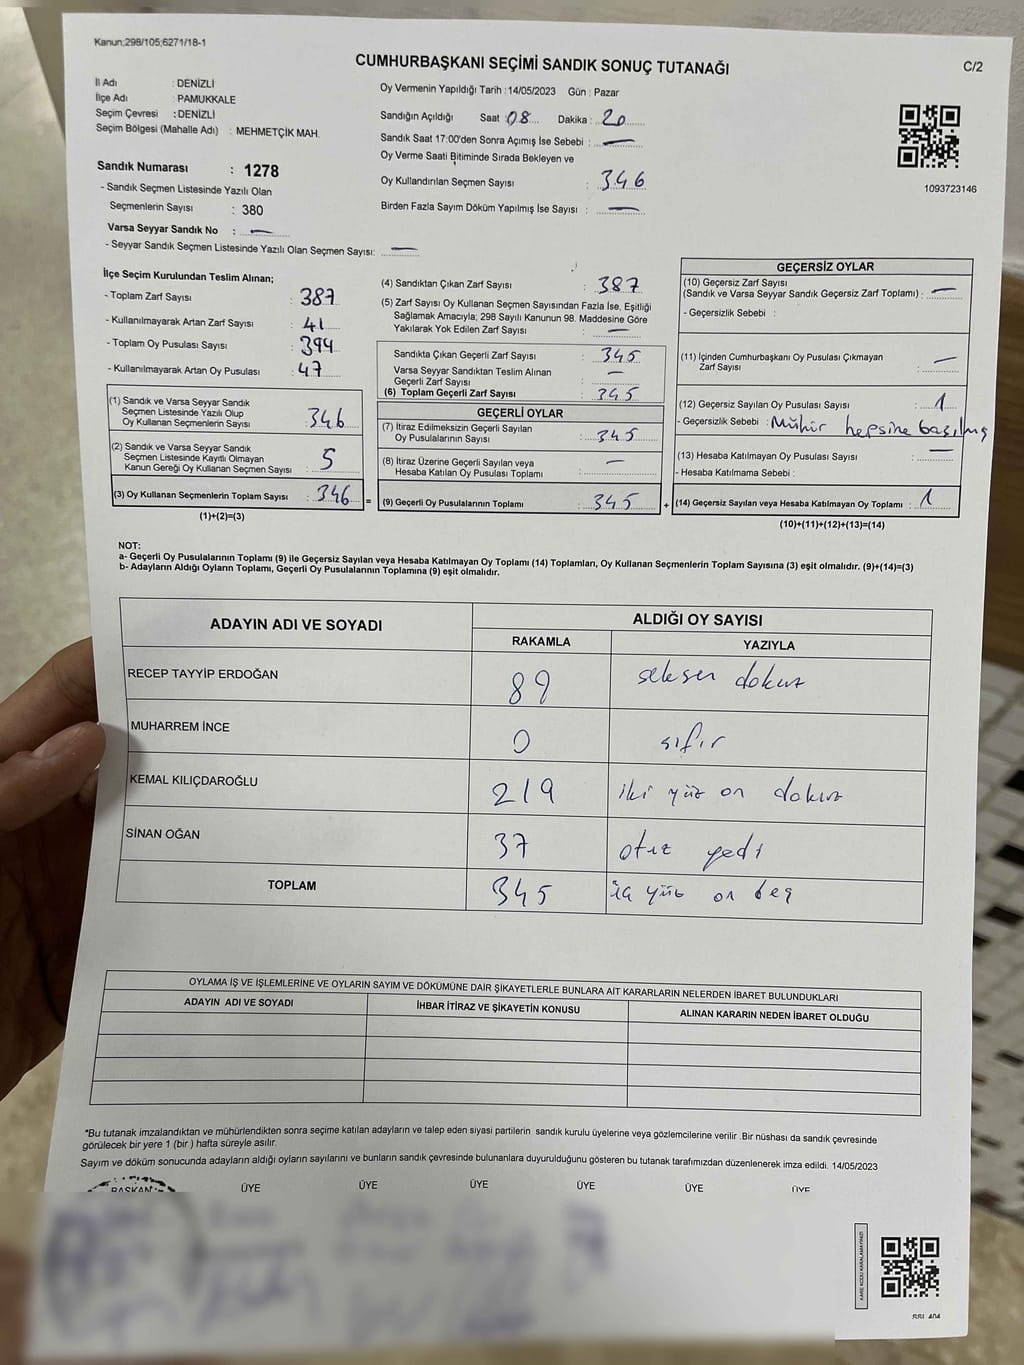 Kanun;298/105;6271/18-1
CUMHURBAŞKANI SEÇİMİ SANDIK SONUÇ TUTANAĞI
C/2
İl Adı : DENİZLİ
İlçe Adı : PAMUKKALE
Seçim Çevresi : DENİZLİ
Seçim Bölgesi (Mahalle Adı) : MEHMETÇİK MAH.
Sandık Numarası : 1278
- Sandık Seçmen Listesinde Yazılı Olan
Seçmenlerin Sayısı : 380
Varsa Seyyar Sandık No : —
- Seyyar Sandık Seçmen Listesinde Yazılı Olan Seçmen Sayısı: —
Oy Vermenin Yapıldığı Tarih :14/05/2023 Gün : Pazar
Sandığın Açıldığı Saat : 08 Dakika : 20
Sandık Saat 17:00'den Sonra Açımış İse Sebebi : —
Oy Verme Saati Bitiminde Sırada Bekleyen ve
Oy Kullandırılan Seçmen Sayısı : 346
Birden Fazla Sayım Döküm Yapılmış İse Sayısı : —
1093723146
İlçe Seçim Kurulundan Teslim Alınan;
- Toplam Zarf Sayısı : 387
- Kullanılmayarak Artan Zarf Sayısı : 41
- Toplam Oy Pusulası Sayısı : 394
- Kullanılmayarak Artan Oy Pusulası : 47
(1) Sandık ve Varsa Seyyar Sandık
Seçmen Listesinde Yazılı Olup
Oy Kullanan Seçmenlerin Sayısı : 346
(2) Sandık ve Varsa Seyyar Sandık
Seçmen Listesinde Kayıtlı Olmayan
Kanun Gereği Oy Kullanan Seçmen Sayısı : 5
(3) Oy Kullanan Seçmenlerin Toplam Sayısı : 346 =
(1)+(2)=(3)
(4) Sandıktan Çıkan Zarf Sayısı : 387
(5) Zarf Sayısı Oy Kullanan Seçmen Sayısından Fazla İse, Eşitliği
Sağlamak Amacıyla; 298 Sayılı Kanunun 98. Maddesine Göre
Yakılarak Yok Edilen Zarf Sayısı : —
Sandıkta Çıkan Geçerli Zarf Sayısı : 345
Varsa Seyyar Sandıktan Teslim Alınan
Geçerli Zarf Sayısı : —
(6) Toplam Geçerli Zarf Sayısı : 345
GEÇERLİ OYLAR
(7) İtiraz Edilmeksizin Geçerli Sayılan
Oy Pusulalarının Sayısı : 345
(8) İtiraz Üzerine Geçerli Sayılan veya
Hesaba Katılan Oy Pusulası Toplamı : —
(9) Geçerli Oy Pusulalarının Toplamı : 345 +
GEÇERSİZ OYLAR
(10) Geçersiz Zarf Sayısı
(Sandık ve Varsa Seyyar Sandık Geçersiz Zarf Toplamı) : —
- Geçersizlik Sebebi :
(11) İçinden Cumhurbaşkanı Oy Pusulası Çıkmayan
Zarf Sayısı : —
(12) Geçersiz Sayılan Oy Pusulası Sayısı : 1
- Geçersizlik Sebebi : Mühür hepsine basılmış
(13) Hesaba Katılmayan Oy Pusulası Sayısı : —
- Hesaba Katılmama Sebebi :
(14) Geçersiz Sayılan veya Hesaba Katılmayan Oy Toplamı : 1
(10)+(11)+(12)+(13)=(14)
NOT:
a- Geçerli Oy Pusulalarının Toplamı (9) ile Geçersiz Sayılan veya Hesaba Katılmayan Oy Toplamı (14) Toplamları, Oy Kullanan Seçmenlerin Toplam Sayısına (3) eşit olmalıdır. (9)+(14)=(3)
b- Adayların Aldığı Oyların Toplamı, Geçerli Oy Pusulalarının Toplamına (9) eşit olmalıdır.
ADAYIN ADI VE SOYADI
ALDIĞI OY SAYISI
RAKAMLA YAZIYLA
RECEP TAYYİP ERDOĞAN 89 seksen dokuz
MUHARREM İNCE 0 sıfır
KEMAL KILIÇDAROĞLU 219 iki yüz on dokuz
SİNAN OĞAN 37 otuz yedi
TOPLAM 345 üç yüz on beş
OYLAMA İŞ VE İŞLEMLERİNE VE OYLARIN SAYIM VE DÖKÜMÜNE DAİR ŞİKAYETLERLE BUNLARA AİT KARARLARIN NELERDEN İBARET BULUNDUKLARI
ADAYIN ADI VE SOYADI İHBAR İTİRAZ VE ŞİKAYETİN KONUSU ALINAN KARARIN NEDEN İBARET OLDUĞU
*Bu tutanak imzalandıktan ve mühürlendikten sonra seçime katılan adayların ve talep eden siyasi partilerin sandık kurulu üyelerine veya gözlemcilerine verilir .Bir nüshası da sandık çevresinde
görülecek bir yere 1 (bir ) hafta süreyle asılır.
Sayım ve döküm sonucunda adayların aldığı oyların sayılarını ve bunların sandık çevresinde bulunanlara duyurulduğunu gösteren bu tutanak tarafımızdan düzenlenerek imza edildi. 14/05/2023
BAŞKAN ÜYE ÜYE ÜYE ÜYE ÜYE ÜYE
KARE KODU KARALAMAYINIZ!